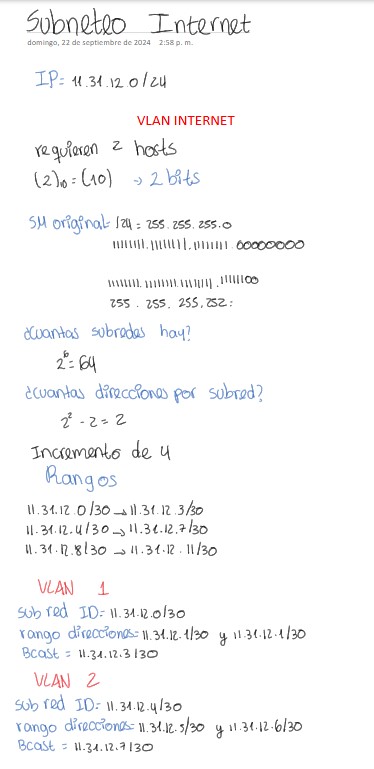 Subneteo Internet
domingo, 22 de septiembre de 2024 2:58 p. m.
IP= 11.31.12.0/24
VLAN INTERNET
requieren 2 hosts
(2)10 = (10) → 2 bits
SM original= /24 = 255.255.255.0
11111111.11111111.11111111.00000000
11111111.11111111.11111111.11111100
255.255.255.252:
¿Cuantas subredes hay?
2^6 = 64
¿Cuantas direcciones por subred?
2^2 - 2 = 2
Incremento de 4
Rangos
11.31.12.0/30 → 11.31.12.3/30
11.31.12.4/30 → 11.31.12.7/30
11.31.12.8/30 → 11.31.12.11/30
VLAN 1
sub red ID= 11.31.12.0/30
rango direcciones= 11.31.12.1/30 y 11.31.12.1/30
Bcast = 11.31.12.3/30
VLAN 2
sub red ID= 11.31.12.4/30
rango direcciones= 11.31.12.5/30 y 11.31.12.6/30
Bcast = 11.31.12.7/30